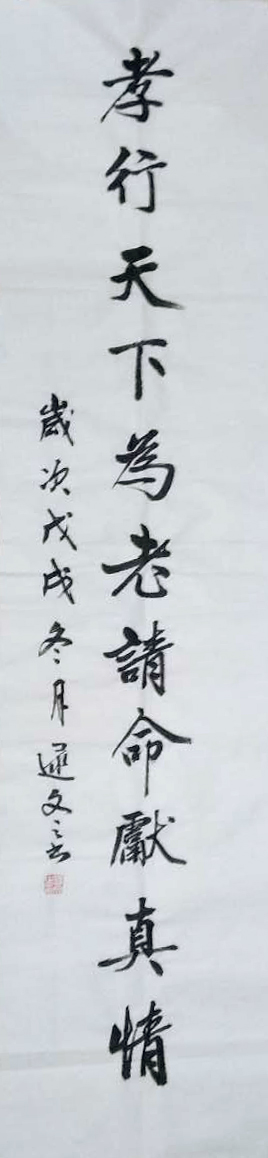 孝行天下為老請命獻真情
歲次戊戌冬月遲文之書